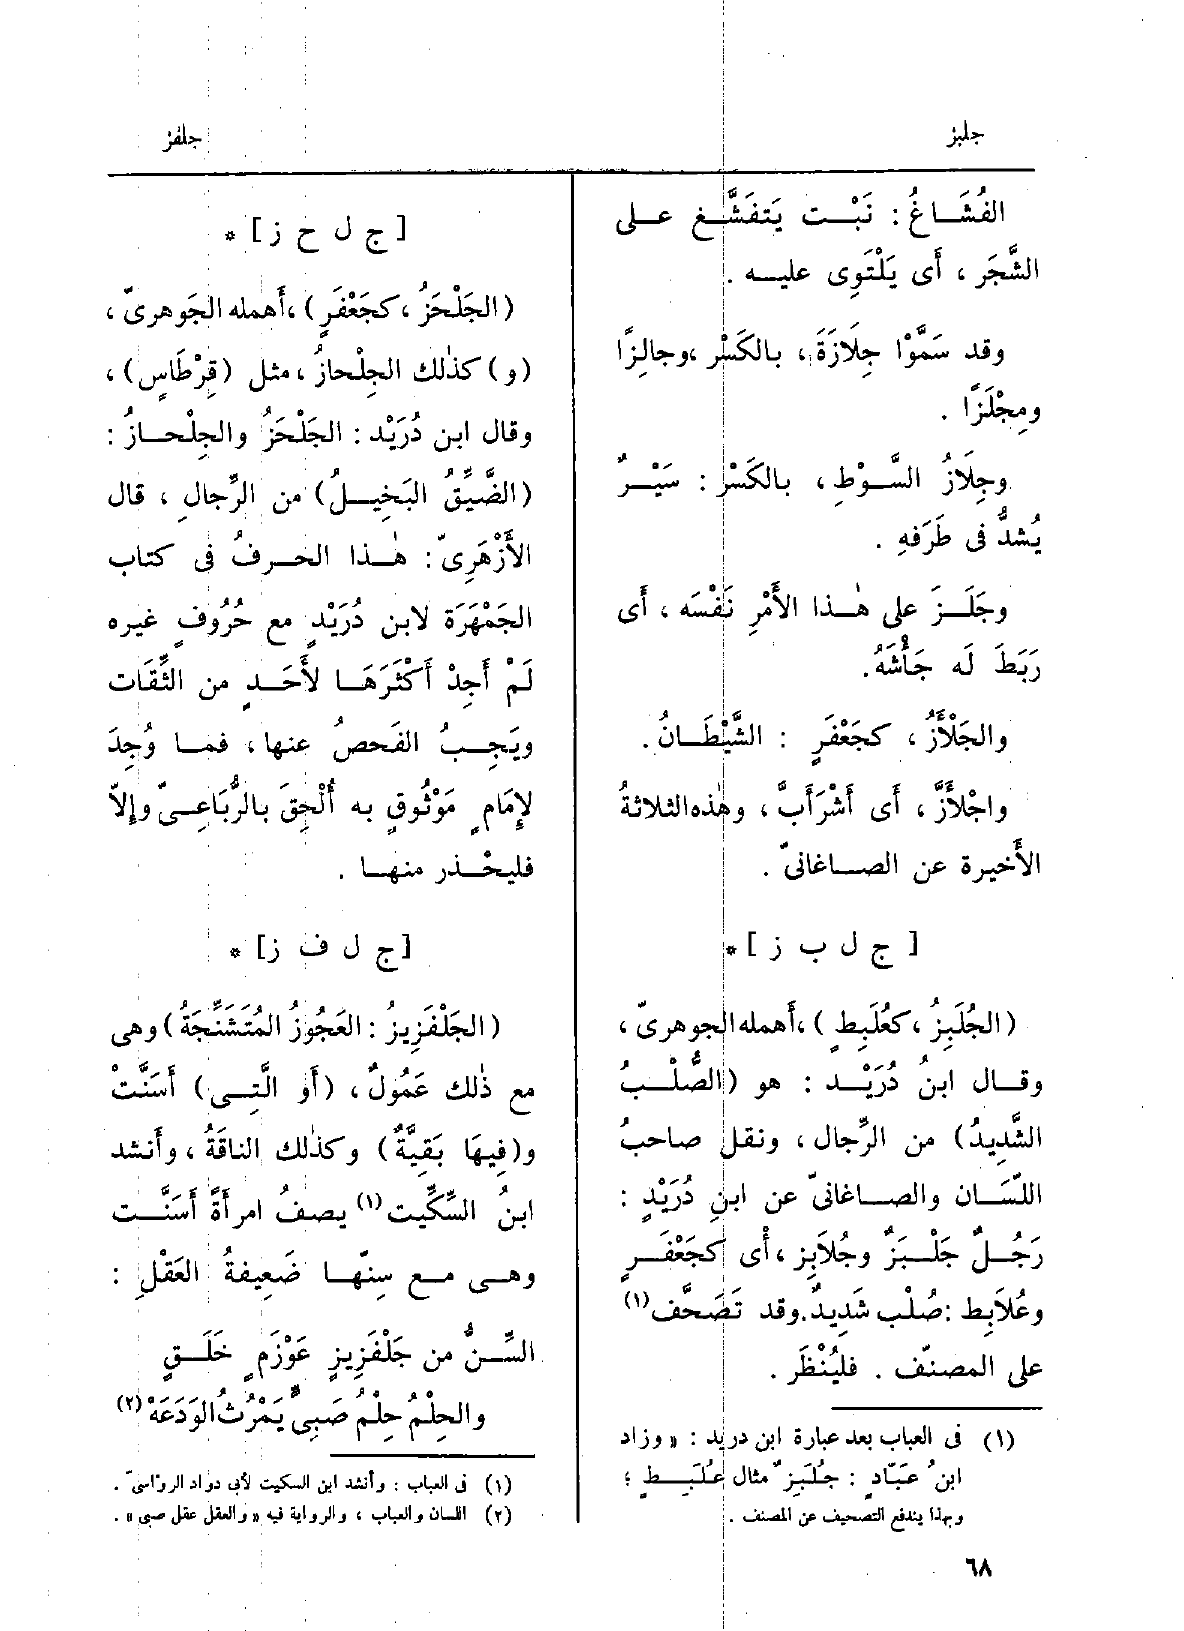 جلبز
جلفز
الفُشَاغُ : نَبْت يَتفَشَّغ على
الشَّجَر ، أَى يَلْتَوِى عليه .
وقد سَمَّوْا جِلازَةَ ، بالكَسْر ، وجالِزًا
ومِجْلَزًا .
وجِلازُ السَّوْطِ ، بالكَسْر : سَيْرٌ
يُشدُّ فى طَرَفهِ .
وجَلَزَ على هٰذا الأَمْرِ نَفْسَه ، أَى
رَبَطَ لَه جَأْشَهُ .
والجَلْأَزُ ، كجَعْفَرٍ : الشَّيْطَانُ .
واجْلأَزَّ ، أَى أَشْرَأَبَّ ، وهٰذه الثلاثةُ
الأَخيرة عن الصاغانىّ .
[ ج ل ب ز ] *
( الجُلَبِزُ ، كعُلَبِطٍ ) ، أَهمله الجوهرىّ ،
وقال ابنُ دُرَيْد : هو (الصُّلْبُ
الشَّدِيدُ) من الرِّجال ، ونقل صاحبُ
اللّسَان والصاغانىّ عن ابنِ دُرَيْدٍ :
رَجُلٌ جَلْبَزٌ وجُلاَبِز ، أَى كجَعْفَرٍ
وعُلاَبِط : صُلْب شَدِيدٌ . وقد تَصَحَّف (١)
على المصنّف . فليُنْظَر .
(١) فى العباب بعد عبارة ابن دريد : « وزاد
ابنُ عَبّادٍ : جُلَبِزٌ مثال عُلَبِطٍ ؛
وبهذا يندفع التصحيف عن المصنف .
[ ج ل ح ز ] *
( الجَلْحَزُ ، كجَعْفَرٍ ) ، أَهمله الجَوهرىّ ،
(و) كذٰلك الجِلْحازُ ، مثل (قِرْطَاسٍ) ،
وقال ابن دُرَيْد : الجَلْحَزُ والجِلْحازُ :
(الضَّيِّقُ البَخِيلُ) من الرِّجالِ ، قال
الأَزْهَرِىّ : هٰذا الحرفُ فى كتاب
الجَمْهَرَة لابن دُرَيْدٍ مع حُرُوفٍ غيره
لَمْ أَجِدْ أَكْثَرَهَا لأَحَدٍ من الثِّقَات
ويَجِبُ الفَحصُ عنها ، فما وُجِدَ
لإِمَامٍ مَوْثُوقٍ به أُلْحِقَ بالرُّبَاعىّ وإِلاّ
فليحْذر منها .
[ج ل ف ز] *
( الجَلْفَزِيزُ : العَجُوزُ المُتَشَنِّجَةُ ) وهى
مع ذٰلك عَمُولٌ ، (أَو الَّتِى) أَسَنَّتْ
و(فِيهَا بَقِيَّةٌ) وكذٰلك الناقَةُ ، وأَنشد
ابنُ السِّكِّيت (١) يصفُ امرأَةً أَسَنَّت
وهى مع سِنِّهَا ضَعِيفةُ العَقْلِ :
السِّنُّ من جَلْفَزِيزٍ عَوْزَمٍ خَلَقٍ
والحِلْمُ حِلْمُ صَبِىٍّ يَمْرُثُ الوَدَعَهْ (٢)
(١) فى العباب : وأنشد ابن السكيت لأبى دواد الرواسىّ .
(٢) اللسان والعباب ، والرواية فيه « والعقل عقل صبى » .
٦٨